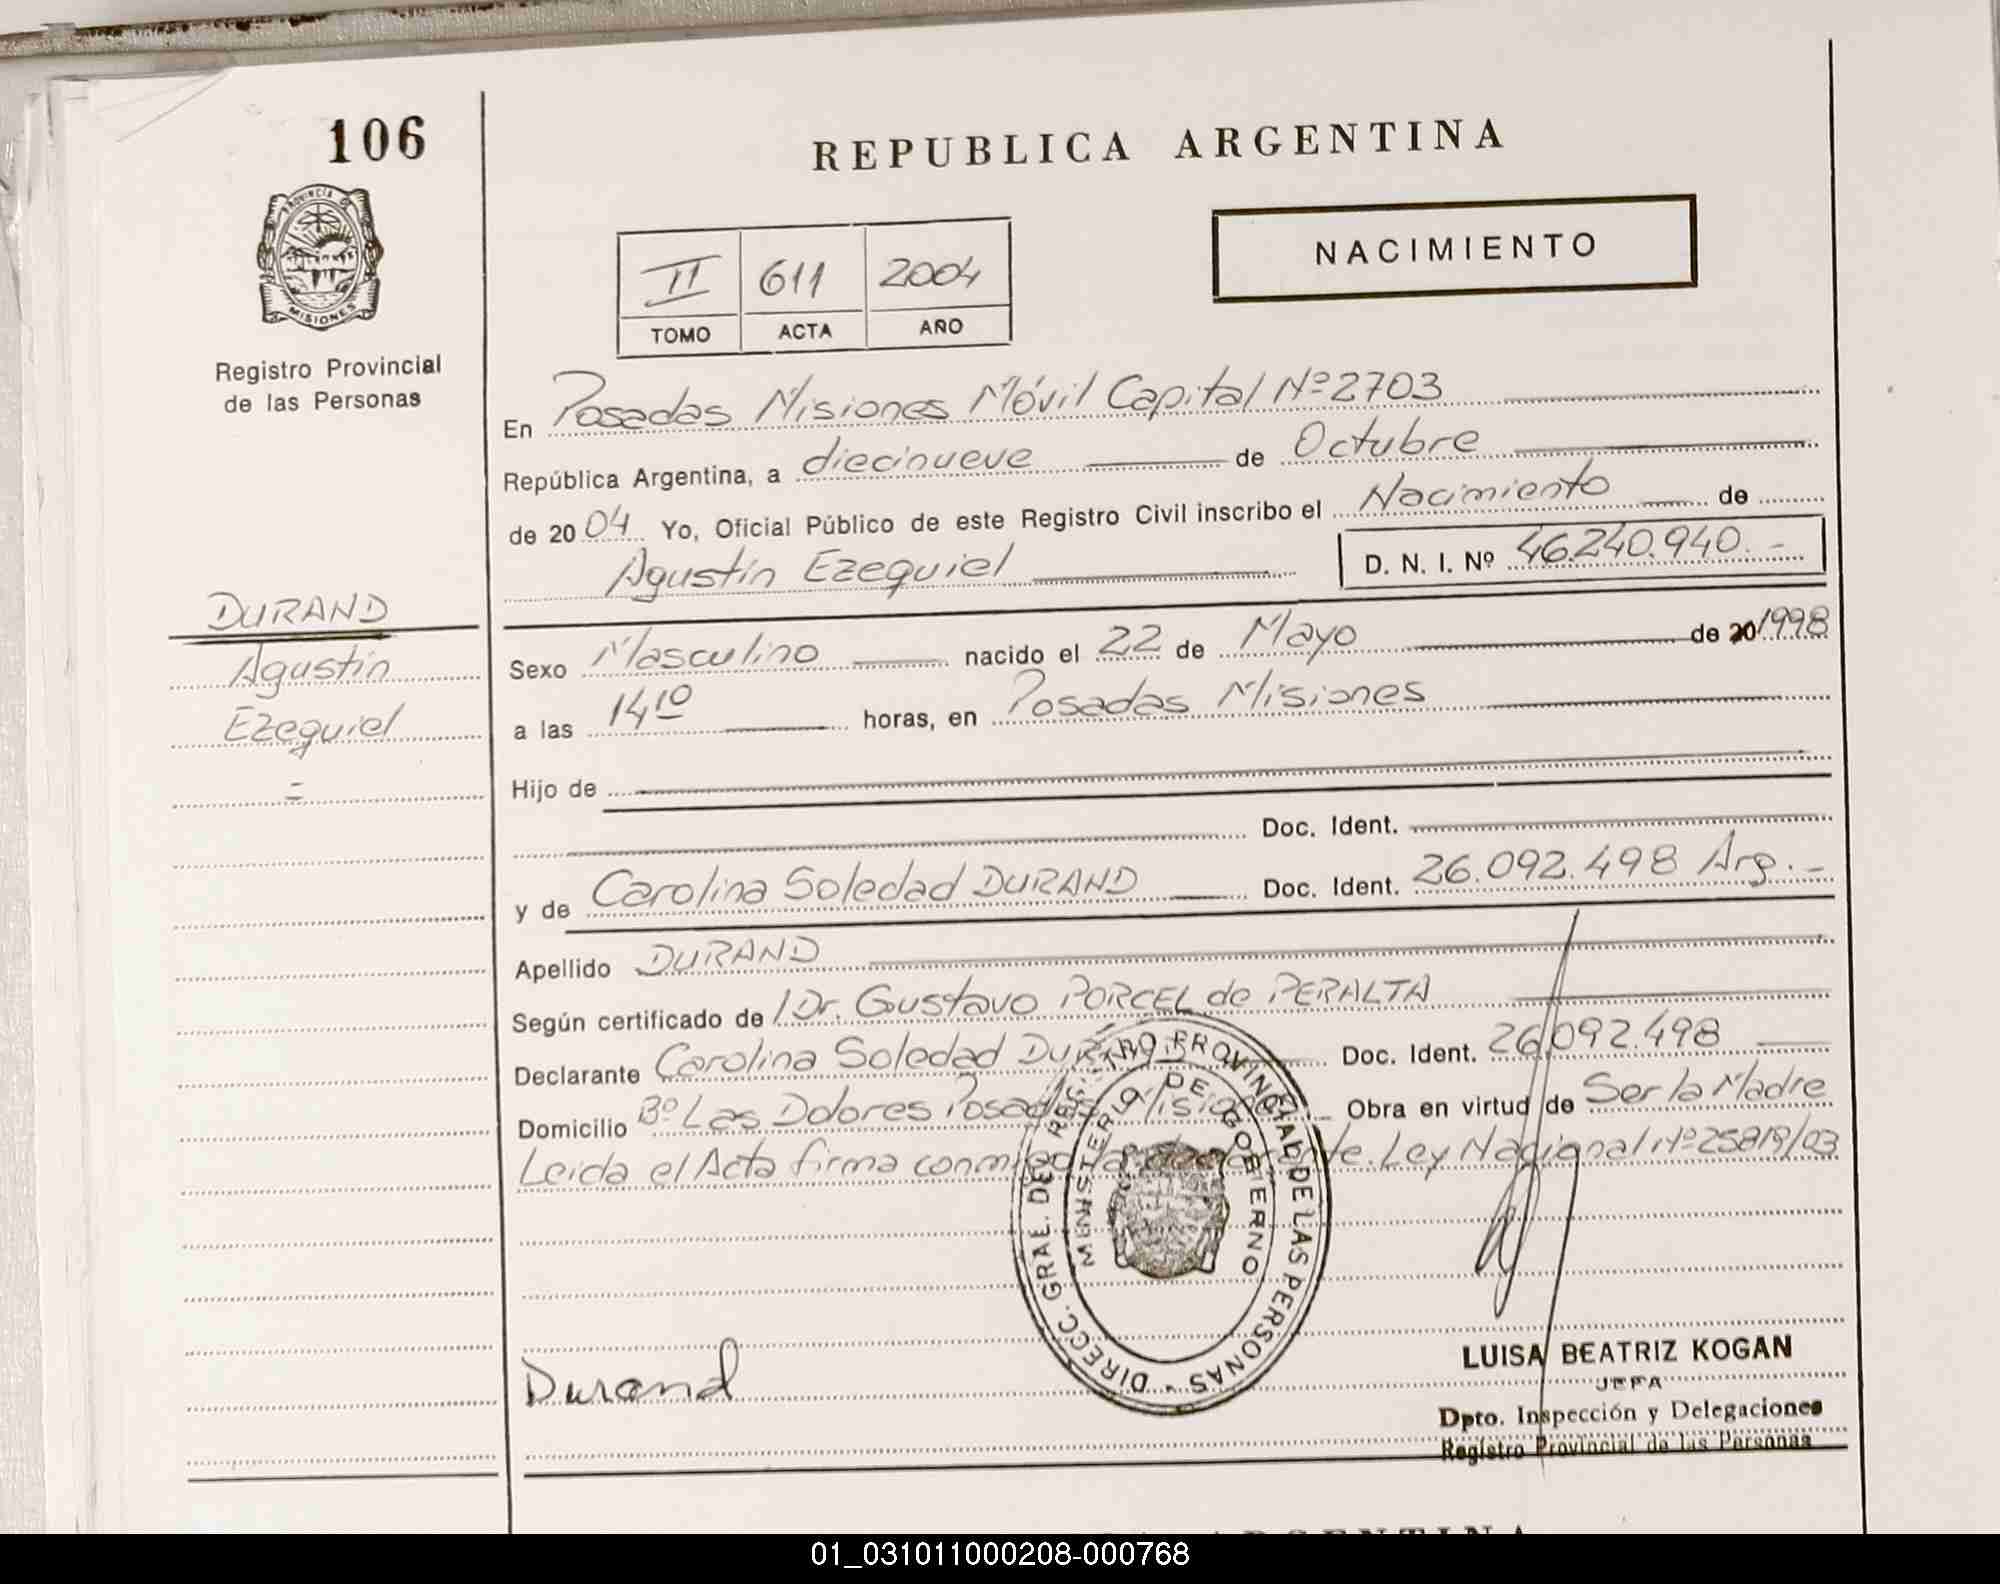 106
REPUBLICA ARGENTINA
PROVINCIA DE MISIONES
NACIMIENTO
II 611 2004
TOMO ACTA AÑO
Registro Provincial
de las Personas
En Posadas Misiones Móvil Capital Nº 2703
República Argentina, a diecinueve de Octubre
de 2004 Yo, Oficial Público de este Registro Civil inscribo el Nacimiento de
Agustín Ezequiel D. N. I. Nº 46.240.940.-
DURAND
Agustín
Ezequiel
=
Sexo Masculino nacido el 22 de Mayo de 20/1998
a las 14 10 horas, en Posadas Misiones
Hijo de
Doc. Ident.
y de Carolina Soledad DURAND Doc. Ident. 26.092.498 Arg.-
Apellido DURAND
Según certificado de /Dr. Gustavo PORCEL de PERALTA
Declarante Carolina Soledad DURAND Doc. Ident. 26.092.498
Domicilio Bº Las Dolores Posadas Misiones Obra en virtud de Ser la Madre
Leida el Acta firma conmigo la declarante. Ley Nacional Nº 25819/03
DIRECC. GRAL. DEL REGISTRO PROVINCIAL DE LAS PERSONAS
MINISTERIO DE GOBIERNO
Durand
LUISA BEATRIZ KOGAN
JEFA
Dpto. Inspección y Delegaciones
Registro Provincial de las Personas
ARGENTINA
01_031011000208-000768